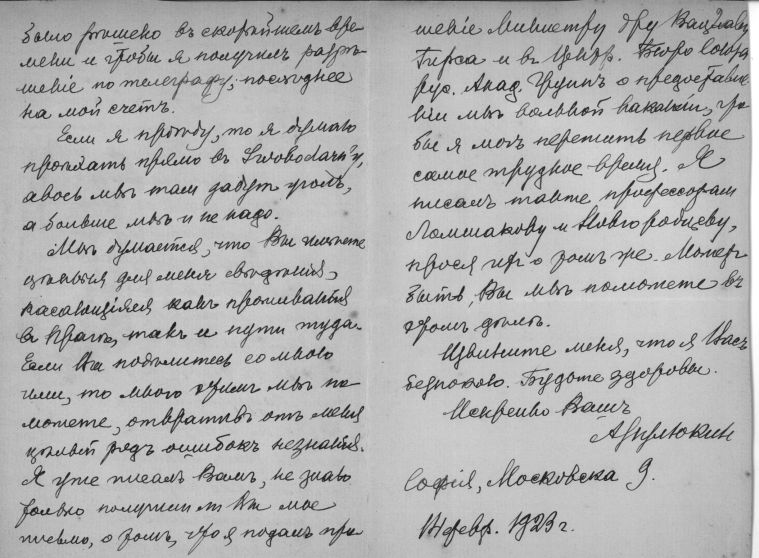 было решено въ скорѣйшемъ вре-
мени и чтобы я получилъ разрѣ-
шеніе по телеграфу; послѣднее
на мой счетъ.
Если я пройду, то я думаю
проѣхать прямо въ Swobodarn'у,
авось мнѣ тамъ дадутъ уголъ,
а больше мнѣ и не надо.
Мнѣ думается, что Вы имѣете
цѣнныя для меня свѣдѣнія,
касающіяся какъ проживанія
въ Прагѣ, такъ и пути туда.
Если Вы подѣлитесь со мною
ими, то много этимъ мнѣ по-
можете, отвративъ отъ меня
цѣлый рядъ ошибокъ незнанія.
Я уже писалъ Вамъ, не знаю
только получили ли Вы мое
письмо, о томъ, что я подалъ про-
шеніе Министру д-ру Вацлаву
Гирса и въ Центр. Бюро Союза
рус. Акад. Группъ о предоставле-
ніи мнѣ вольной вакансіи, что-
бы я могъ пережить первое
самое трудное время. Я
писалъ также профессорамъ
Ломшакову и Новгородцеву,
прося ихъ о томъ же. Можетъ
быть, Вы мнѣ поможете въ
этомъ дѣлѣ.
Извините меня, что я Васъ
безпокою. Будьте здоровы.
Искренно Вашъ
Софія, Московска 9.
февр. 1923 г.